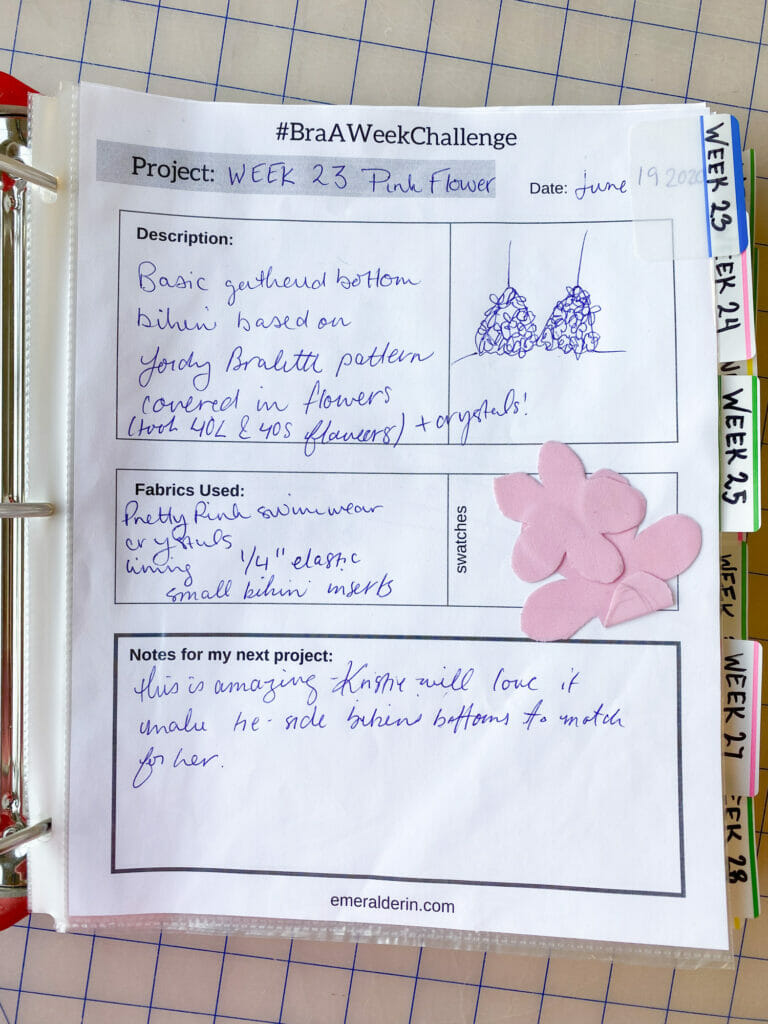 #BraAWeekChallenge
Project: WEEK 23 Pink Flower
Date: June 19 2020
Description:
Basic gathered bottom
bikini based on
Jordy Bralette pattern
covered in flowers
(took 40L & 40S flowers) + crystals!
Fabrics Used:
Pretty Pink swimwear
crystals
lining 1/4" elastic
small bikini inserts
swatches
Notes for my next project:
this is amazing - Kristie will love it
make tie-side bikini bottoms to match
for her.
emeralderin.com
WEEK 23
EEK 24
WEEK 25
WEEK
WEEK 27
EEK 28